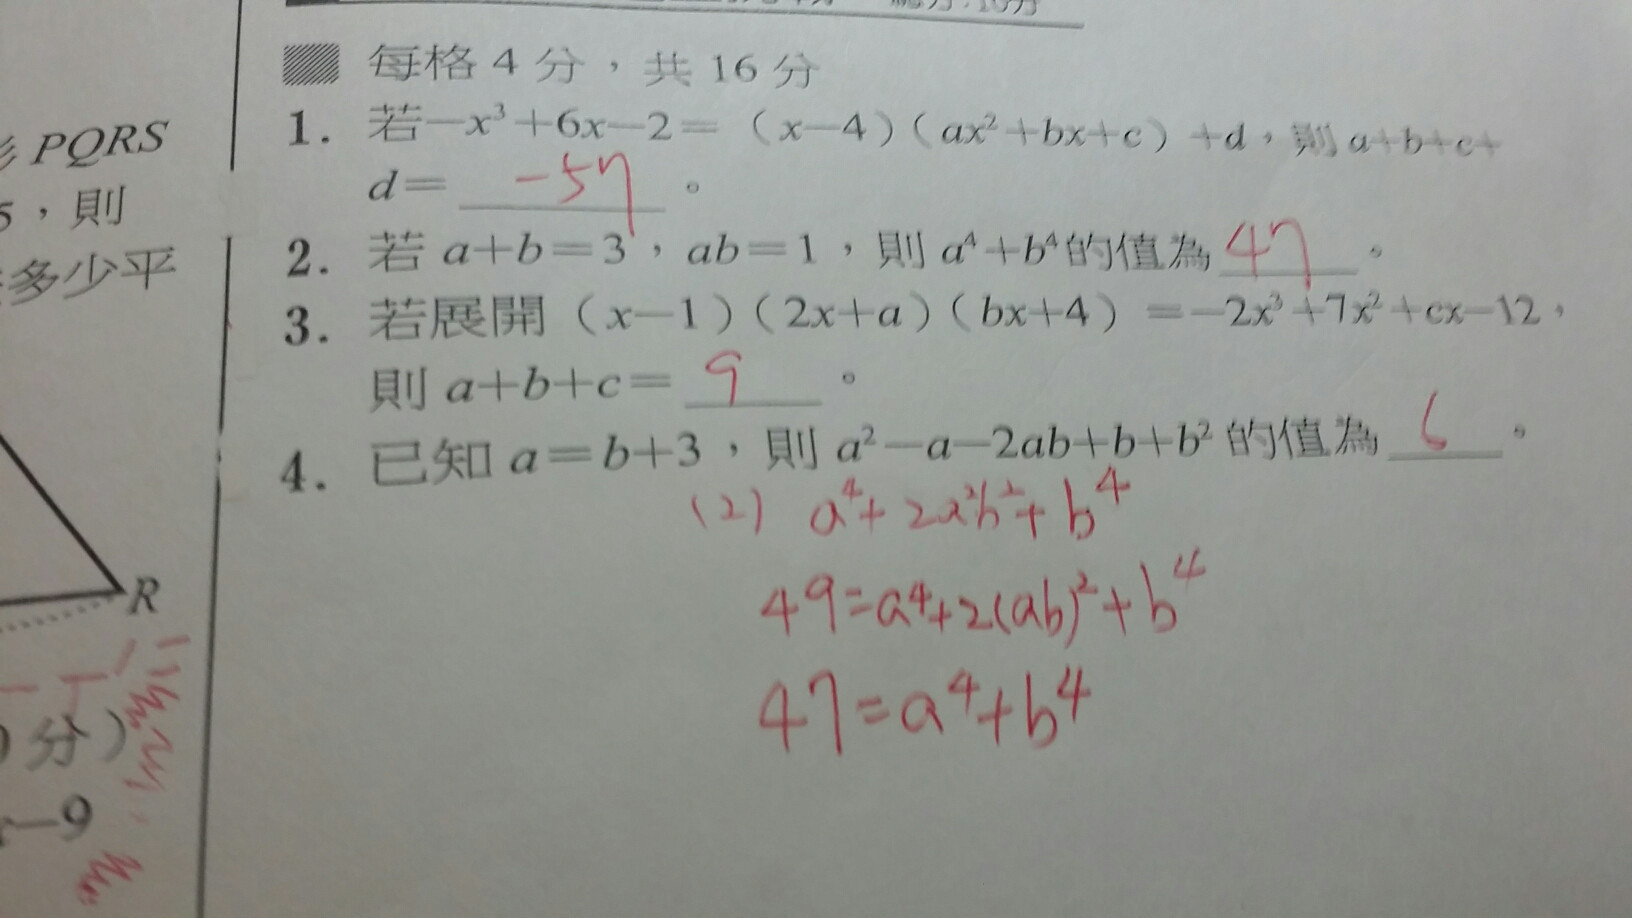 總分:16分
每格 4 分，共 16 分
1. 若−x³+6x−2=（x−4）(ax²+bx+c）+d，則 a+b+c+
d= -57 。
2. 若 a+b=3，ab=1，則 a⁴+b⁴的值為 47 。
3. 若展開（x−1）(2x+a)（bx+4）=−2x³+7x²+cx−12，
則 a+b+c= 9 。
4. 已知 a=b+3，則 a²−a−2ab+b+b² 的值為 6 。
(2) a⁴+2a²b²+b⁴
49=a⁴+2(ab)²+b⁴
47=a⁴+b⁴
PQRS
5，則
多少平
R
分）
−9